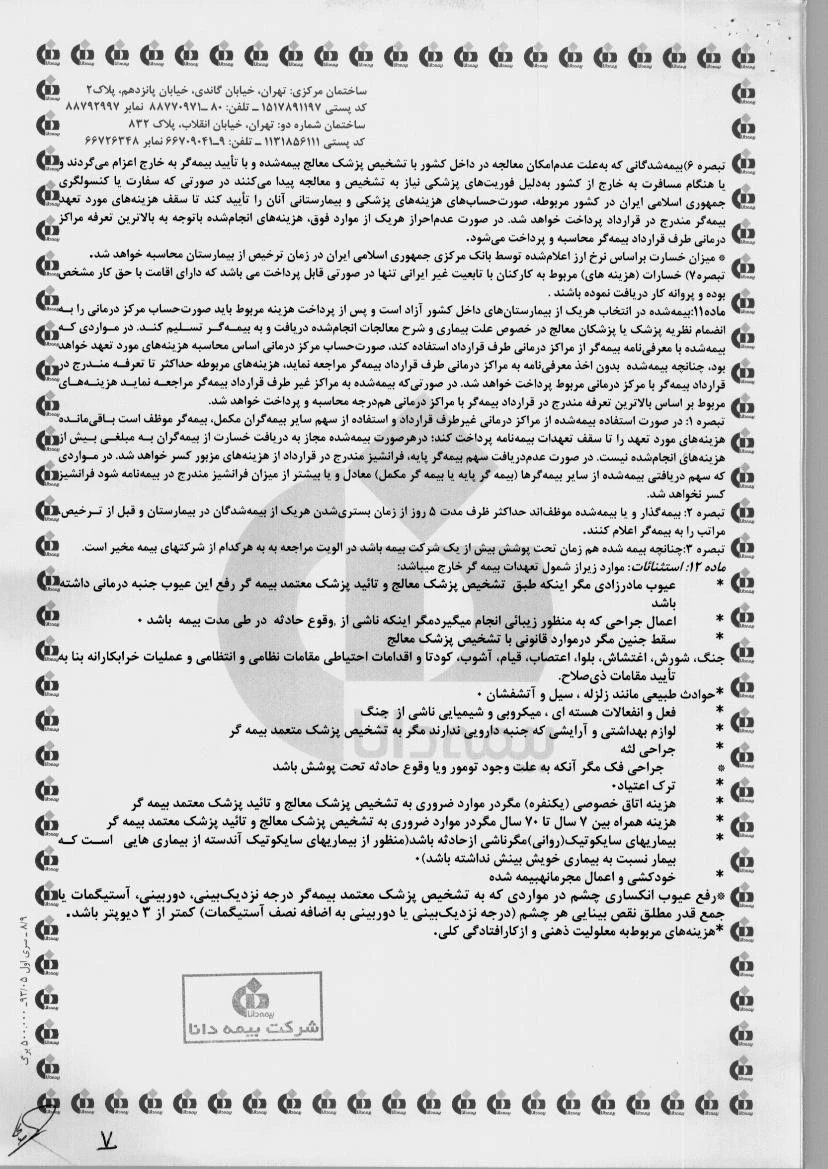 ساختمان مرکزی: تهران، خیابان گاندی، خیابان پانزدهم، پلاک۲
کد پستی ۱۵۱۷۸۹۱۱۹۷ ــ تلفن: ۸۰ ــ۸۸۷۷۰۹۷۱ نمابر ۸۸۷۹۲۹۹۷
ساختمان شماره دو: تهران، خیابان انقلاب، پلاک ۸۳۲
کد پستی ۱۱۳۱۸۵۶۱۱۱ ــ تلفن: ۹ــ۶۶۷۰۹۰۴۱ نمابر ۶۶۷۲۶۳۴۸
تبصره ۶)بیمه‌شدگانی که به‌علت عدم‌امکان معالجه در داخل کشور با تشخیص پزشک معالج بیمه‌شده و با تأیید بیمه‌گر به خارج اعزام می‌گردند و
یا هنگام مسافرت به خارج از کشور به‌دلیل فوریت‌های پزشکی نیاز به تشخیص و معالجه پیدا می‌کنند در صورتی که سفارت یا کنسولگری
جمهوری اسلامی ایران در کشور مربوطه، صورت‌حساب‌های هزینه‌های پزشکی و بیمارستانی آنان را تأیید کند تا سقف هزینه‌های مورد تعهد
بیمه‌گر مندرج در قرارداد پرداخت خواهد شد. در صورت عدم‌احراز هریک از موارد فوق، هزینه‌های انجام‌شده باتوجه به بالاترین تعرفه مراکز
درمانی طرف قرارداد بیمه‌گر محاسبه و پرداخت می‌شود.
* میزان خسارت براساس نرخ ارز اعلام‌شده توسط بانک مرکزی جمهوری اسلامی ایران در زمان ترخیص از بیمارستان محاسبه خواهد شد.
تبصره۷) خسارات (هزینه های) مربوط به کارکنان با تابعیت غیر ایرانی تنها در صورتی قابل پرداخت می باشد که دارای اقامت با حق کار مشخص
بوده و پروانه کار دریافت نموده باشند .
ماده۱۱:بیمه‌شده در انتخاب هریک از بیمارستان‌های داخل کشور آزاد است و پس از پرداخت هزینه مربوط باید صورت‌حساب مرکز درمانی را به
انضمام نظریه پزشک یا پزشکان معالج در خصوص علت بیماری و شرح معالجات انجام‌شده دریافت و به بیمه‌گر تسلیم کند. در مواردی که
بیمه‌شده با معرفی‌نامه بیمه‌گر از مراکز درمانی طرف قرارداد استفاده کند، صورت‌حساب مرکز درمانی اساس محاسبه هزینه‌های مورد تعهد خواهد
بود، چنانچه بیمه‌شده بدون اخذ معرفی‌نامه به مراکز درمانی طرف قرارداد بیمه‌گر مراجعه نماید، هزینه‌های مربوطه حداکثر تا تعرفه مندرج در
قرارداد بیمه‌گر با مرکز درمانی مربوط پرداخت خواهد شد. در صورتی‌که بیمه‌شده به مراکز غیر طرف قرارداد بیمه‌گر مراجعه نماید هزینه‌های
مربوط بر اساس بالاترین تعرفه مندرج در قرارداد بیمه‌گر با مراکز درمانی هم‌درجه محاسبه و پرداخت خواهد شد.
تبصره ۱: در صورت استفاده بیمه‌شده از مراکز درمانی غیرطرف قرارداد و استفاده از سهم سایر بیمه‌گران مکمل، بیمه‌گر موظف است باقی‌مانده
هزینه‌های مورد تعهد را تا سقف تعهدات بیمه‌نامه پرداخت کند؛ درهرصورت بیمه‌شده مجاز به دریافت خسارت از بیمه‌گران به مبلغی بیش از
هزینه‌های انجام‌شده نیست. در صورت عدم‌دریافت سهم بیمه‌گر پایه، فرانشیز مندرج در قرارداد از هزینه‌های مزبور کسر خواهد شد. در مواردی
که سهم دریافتی بیمه‌شده از سایر بیمه‌گرها (بیمه گر پایه یا بیمه گر مکمل) معادل و یا بیشتر از میزان فرانشیز مندرج در بیمه‌نامه شود فرانشیز
کسر نخواهد شد.
تبصره ۲: بیمه‌گذار و یا بیمه‌شده موظف‌اند حداکثر ظرف مدت ۵ روز از زمان بستری‌شدن هریک از بیمه‌شدگان در بیمارستان و قبل از ترخیص،
مراتب را به بیمه‌گر اعلام کنند.
تبصره ۳:چنانچه بیمه شده هم زمان تحت پوشش بیش از یک شرکت بیمه باشد در الویت مراجعه به به هرکدام از شرکتهای بیمه مخیر است.
ماده ۱۲: استثنائات: موارد زیراز شمول تعهدات بیمه گر خارج میباشد:
* عیوب مادرزادی مگر اینکه طبق تشخیص پزشک معالج و تائید پزشک معتمد بیمه گر رفع این عیوب جنبه درمانی داشته
باشد
* اعمال جراحی که به منظور زیبائی انجام میگیردمگر اینکه ناشی از ,وقوع حادثه در طی مدت بیمه باشد ۰
* سقط جنین مگر درموارد قانونی با تشخیص پزشک معالج
جنگ، شورش، اغتشاش، بلوا، اعتصاب، قیام، آشوب، کودتا و اقدامات احتیاطی مقامات نظامی و انتظامی و عملیات خرابکارانه بنا به
تأیید مقامات ذی‌صلاح.
*حوادث طبیعی مانند زلزله ، سیل و آتشفشان ۰
* فعل و انفعالات هسته ای ، میکروبی و شیمیایی ناشی از جنگ
* لوازم بهداشتی و آرایشی که جنبه دارویی ندارند مگر به تشخیص پزشک متعمد بیمه گر
* جراحی لثه
* جراحی فک مگر آنکه به علت وجود تومور ویا وقوع حادثه تحت پوشش باشد
* ترک اعتیاد۰
* هزینه اتاق خصوصی (یکنفره) مگردر موارد ضروری به تشخیص پزشک معالج و تائید پزشک معتمد بیمه گر
* هزینه همراه بین ۷ سال تا ۷۰ سال مگردر موارد ضروری به تشخیص پزشک معالج و تائید پزشک معتمد بیمه گر
* بیماریهای سایکوتیک(روانی)مگرناشی ازحادثه باشد(منظور از بیماریهای سایکوتیک آندسته از بیماری هایی است که
بیمار نسبت به بیماری خویش بینش نداشته باشد)۰
* خودکشی و اعمال مجرمانهبیمه شده
*رفع عیوب انکساری چشم در مواردی که به تشخیص پزشک معتمد بیمه‌گر درجه نزدیک‌بینی، دوربینی، آستیگمات یا
جمع قدر مطلق نقص بینایی هر چشم (درجه نزدیک‌بینی یا دوربینی به اضافه نصف آستیگمات) کمتر از ۳ دیوپتر باشد.
*هزینه‌های مربوط‌به معلولیت ذهنی و ازکارافتادگی کلی.
بیمه دانا
شرکت بیمه دانا
۸/۹ ــ سری اول ۹۳/۰۵ــ ۵۰۰.۰۰۰ برگ
۷